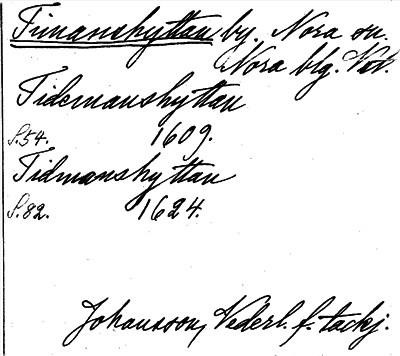 Timanshyttan by. Nora sn.
Nora blg. Vstm.
Tidemanshyttan
S.54. 1609.
Tidmanshyttan
S.82. 1624.
Johansson, Nederl. f. tackj.